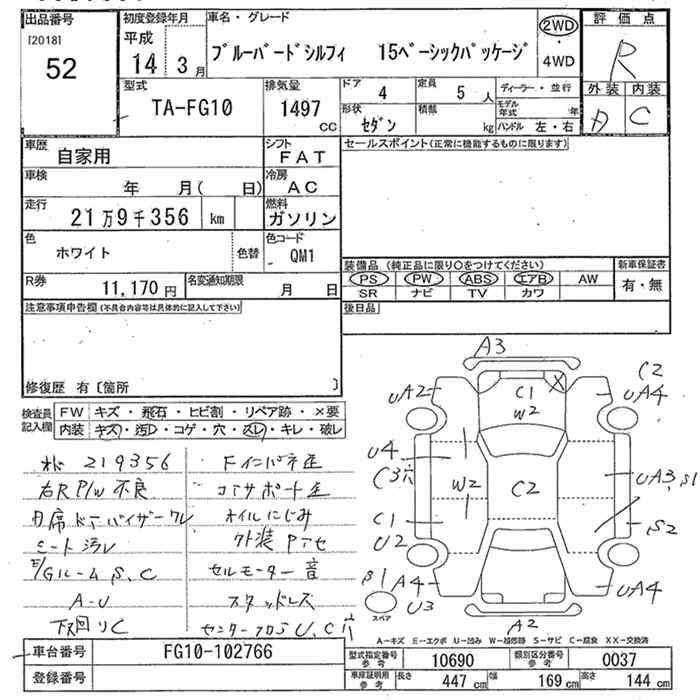 出品番号
[2018]
52
初度登録年月
平成
14 3 月
車名・グレード
ブルーバードシルフィ 15ベーシックパッケージ
2WD
・
4WD
評価点
R
外装 内装
C
型式
TA-FG10
排気量
1497
CC
ドア
4
定員
5 人
ディーラー・並行
形状
セダン
積載
kg
モデル
年式
年
ハンドル 左・右
車歴
自家用
シフト
FAT
車検
年 月( 日)
冷房
AC
走行
21万9千356 km
燃料
ガソリン
色
ホワイト
色替
色コード
QM1
R券
11,170 円
名変通知期限
月 日
セールスポイント(正常に機能するものに限ります)
装備品 (純正品に限り〇をつけてください)
PS PW ABS エアB AW
SR ナビ TV カワ
新車保証書
有・無
後日品
注意事項申告欄(不具合内容等は具体的に記入して下さい)
修復歴 有〔箇所 〕
検査員
記入欄
FW キズ・飛石・ヒビ割・リペア跡・×要
内装 キズ・汚レ・コゲ・穴・スレ・キレ・破レ
219356
右R P/W 不良
シート汚レ
E/Gルーム S、C
A-U
下回リC
コアサポート歪
オイルにじみ
外装
セルモーター音
スタッドレス
センターフロアU、C穴
A3
UA2
C1
W2
X
C2
UA4
U4
C3穴
W2
C2
UA3,S1
C1
U2
S2
S1
A4
U3
スペア
A2
UA4
A―キズ E―エクボ U―凹み W―補修跡 S―サビ C―腐食 XX―交換済
車台番号
FG10-102766
登録番号
型式指定番号
参考
10690
類別区分番号
参考
0037
車庫証明用
参考
長さ
447 cm
幅
169 cm
高さ
144 cm